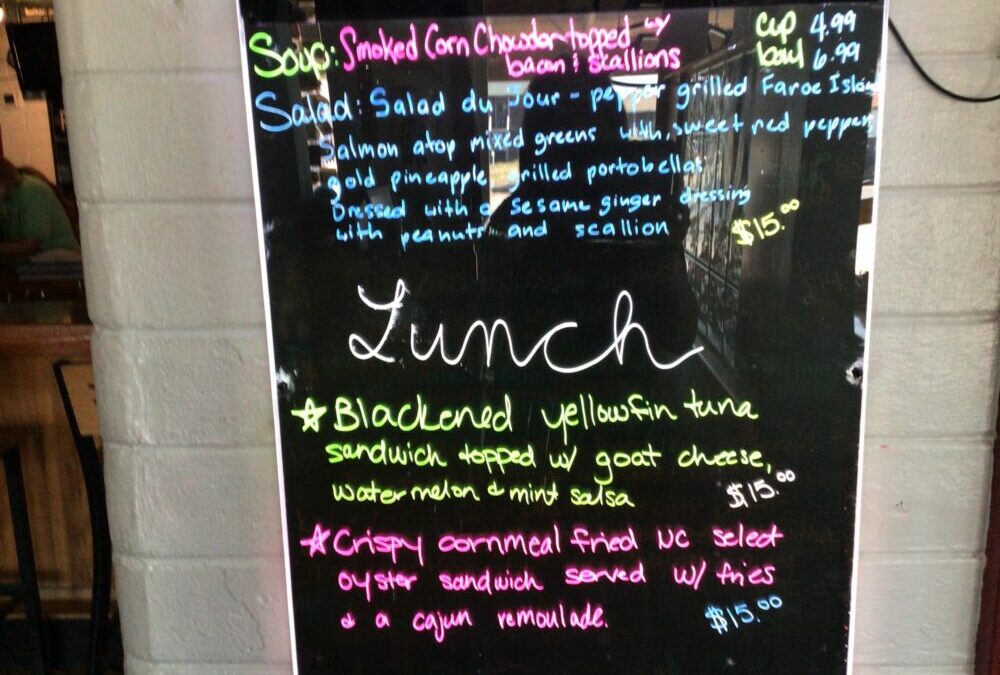 Soup: Smoked Corn Chowder topped w/ cup 4.99
bacon & scallions bowl 6.99
Salad: Salad du Jour - pepper grilled Faroe Island
Salmon atop mixed greens with, sweet red pepper,
gold pineapple grilled portobellas
Dressed with a sesame ginger dressing
with peanuts and scallion $15.00
Lunch
☆ Blackened yellowfin tuna
sandwich topped w/ goat cheese,
watermelon & mint salsa $15.00
☆ Crispy cornmeal fried NC select
oyster sandwich served w/ fries
& a cajun remoulade. $15.00